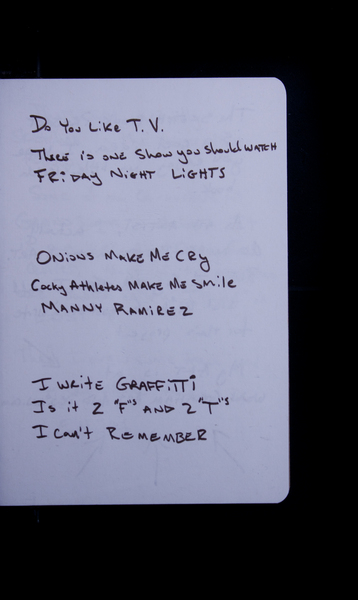 Do You Like T.V.
There is one Show you should WATCH
FRiDAY NiGHT LiGHTS
ONiONS MAKE Me CRy
Cocky Athletes MAKE Me Smile
MANNY RAMiREZ
I WRiTE GRAFFiTTi
Is it 2 "F"s AND 2 "T"s
I CAN't REMEMBER